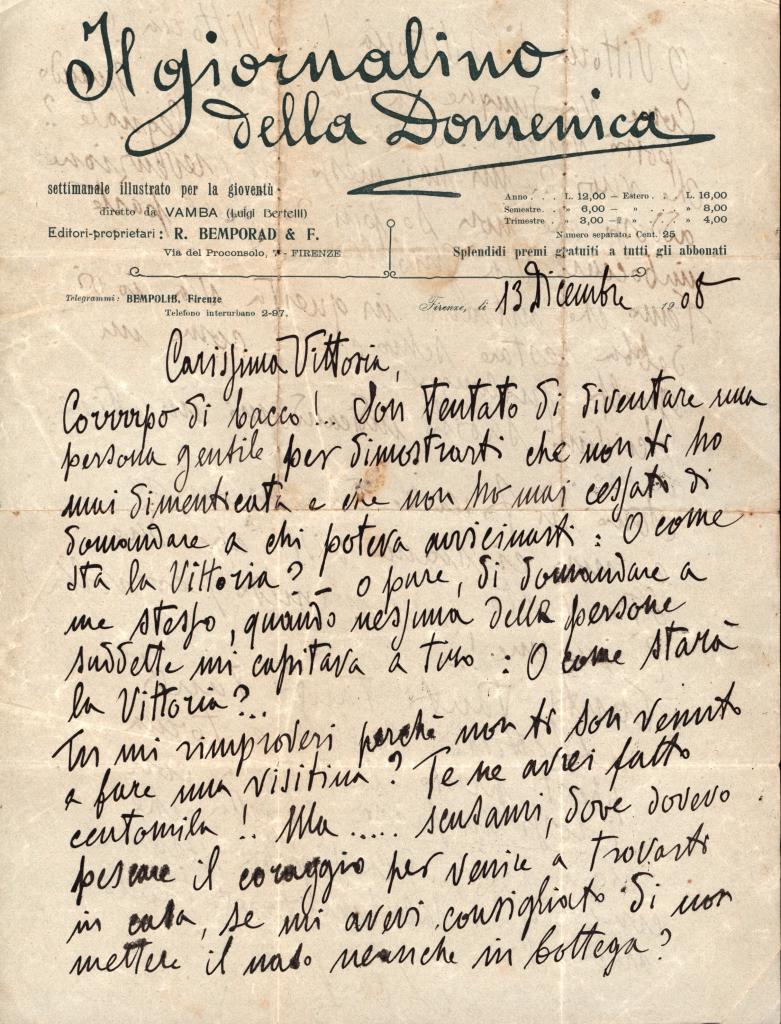 Il giornalino
della Domenica
settimanale illustrato per la gioventù
diretto da VAMBA (Luigi Bertelli)
Editori-proprietari: R. BEMPORAD & F.
Via del Proconsolo, 7 - FIRENZE
Anno . . . L. 12,00 — Estero . : L. 16,00
Semestre. . » 6,00 — » . . » 8,00
Trimestre . » 3,00 — » . . » 4,00
Numero separato: Cent. 25
Splendidi premi gratuiti a tutti gli abbonati
Telegrammi: BEMPOLIB, Firenze
Telefono interurbano 2-97.
Firenze, li 13 Dicembre 1908
Carissima Vittoria,
Corrrrpo di bacco!.. Son tentato di diventare una
persona gentile per dimostrarti che non ti ho
mai dimenticata e che non ho mai cessato di
domandare a chi poteva avvicinarti: O come
sta la Vittoria? – o pure, di domandare a
me stesso, quando nessuna delle persone
suddette mi capitava a tiro: O come starà
la Vittoria?..
Tu mi rimproveri perchè non ti son venuto
a fare una visitina? Te ne avrei fatto
centomila!. Ma ..... scusami, dove dovevo
pescare il coraggio per venire a trovarti
in casa, se mi avevi consigliato di non
mettere il naso neanche in bottega?